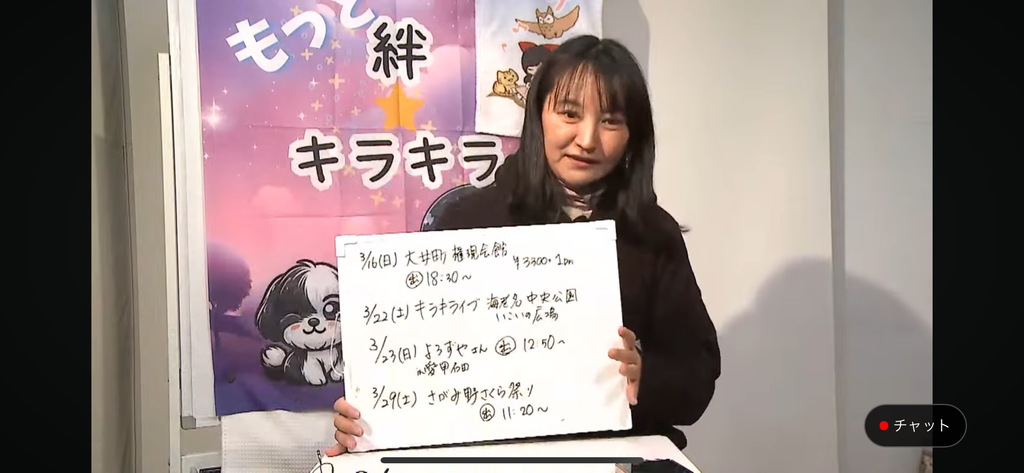 もっと
絆
キラキラ
3/16(日) 大井町 権現会館 ¥3300+1Dri
㊌ 18:30~
3/22(土) キラキライブ 海老名中央公園
いこいの広場
3/23(日) よろずやさん 12:50~
in愛甲石田
3/29(土) さがみ野さくら祭り
11:20~
チャット